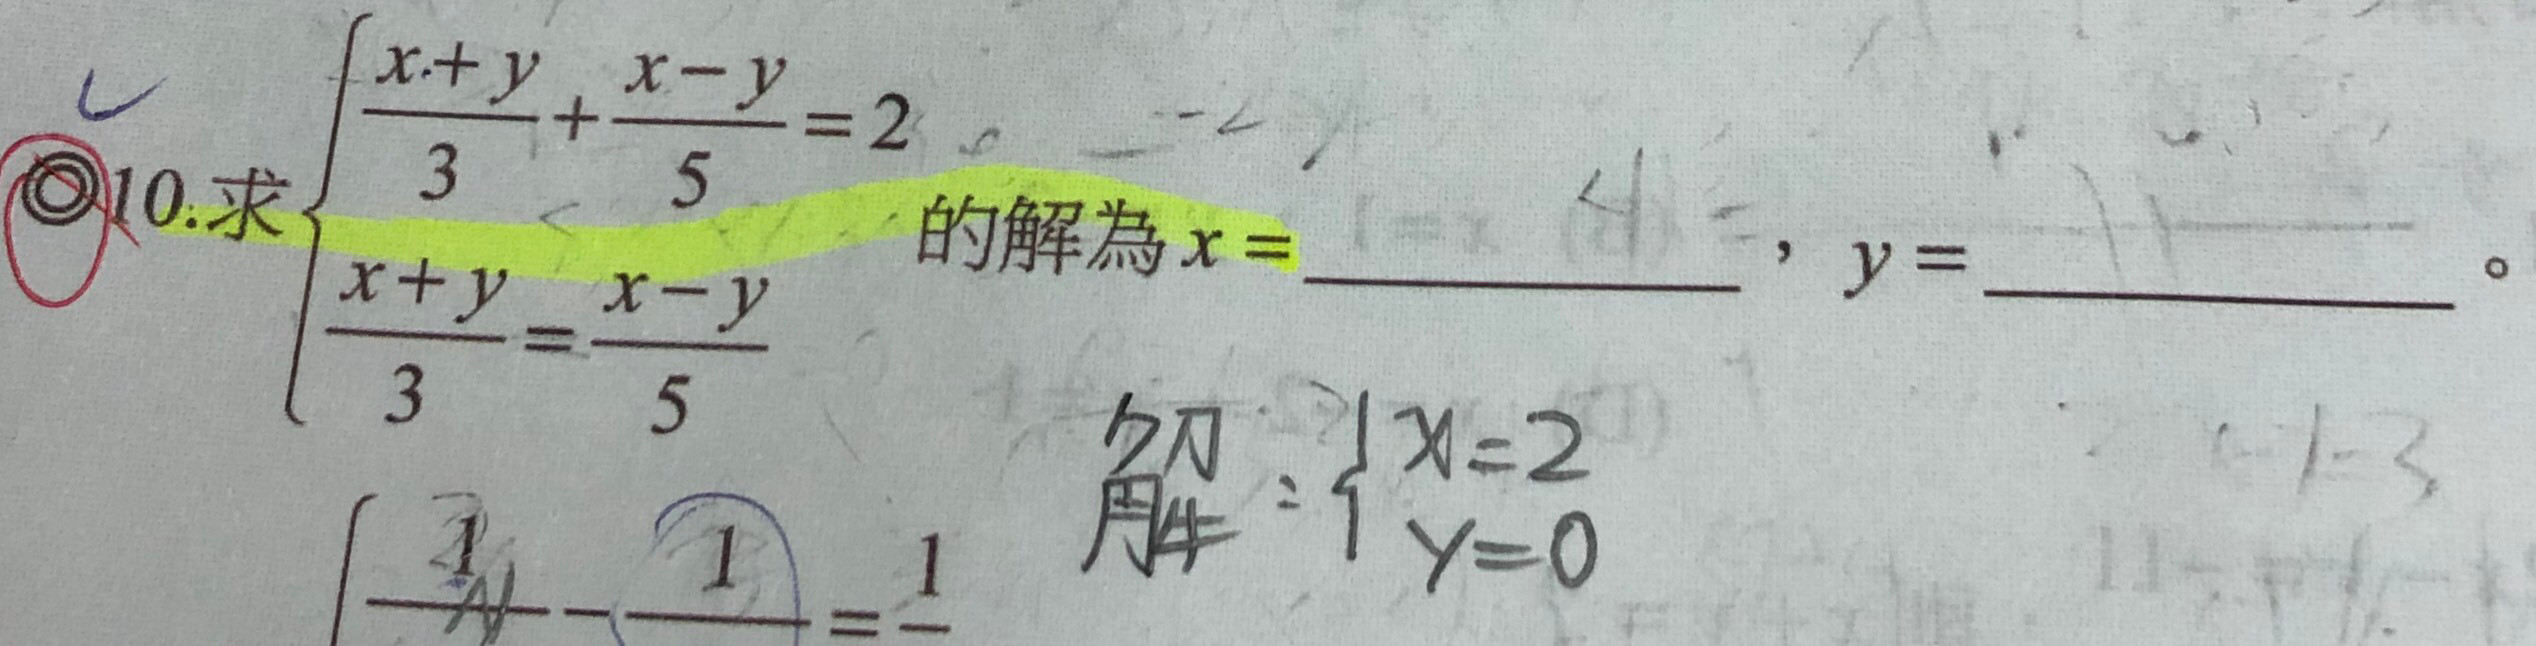 ◎10.求 { (x+y)/3 + (x−y)/5 = 2
(x+y)/3 = (x−y)/5 的解為 x = ______ , y = ______ 。
解: { x=2
y=0
1 − 1 = 1